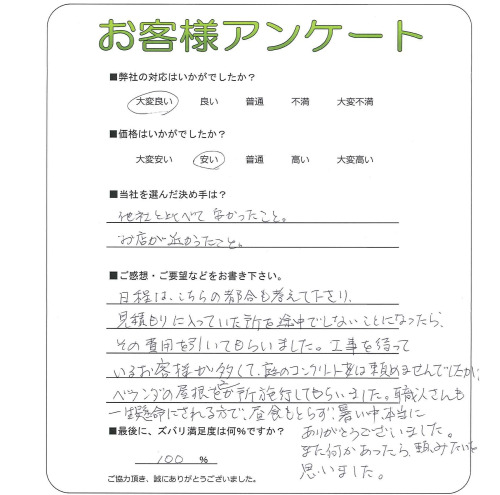 お客様アンケート
■弊社の対応はいかがでしたか？
大変良い 良い 普通 不満 大変不満
■価格はいかがでしたか？
大変安い 安い 普通 高い 大変高い
■当社を選んだ決め手は？
他社と比べて安かったこと。
お店が近かったこと。
■ご感想・ご要望などをお書き下さい。
日程は、こちらの都合も考えて下さり、
見積もりに入っていた所を途中でしないことになったら、
その費用を引いてもらいました。工事を待って
いるお客様が多くて、庭のコンクリート等は頼めませんでしたが、
ベランダの屋根を か所施行してもらいました。職人さんも
一生懸命にされる方で、昼食もとらず、暑い中、本当に
ありがとうございました。
また何かあったら、頼みたいと
思いました。
■最後に、ズバリ満足度は何％ですか？
100 ％
ご協力頂き、誠にありがとうございました。